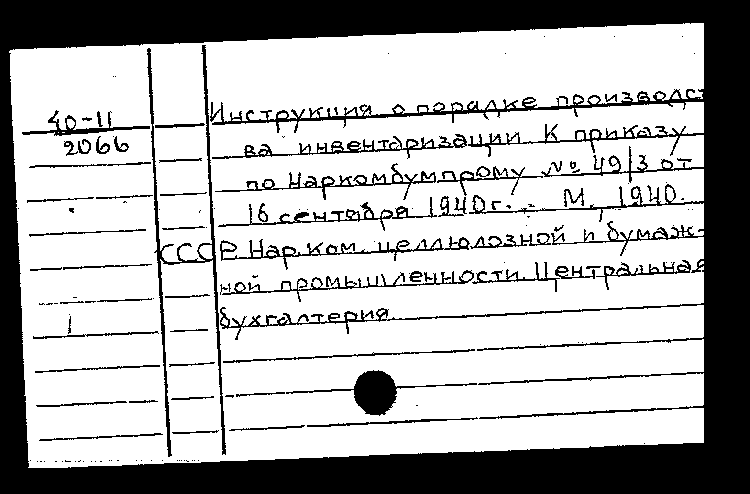 40-11
2066
Инструкция о порядке производст
ва инвентаризации. К приказу
по Наркомбумпрому № 49/3 от
16 сентября 1940г. - М., 1940.
СССР. Нар. ком. целлюлозной и бумаж-
ной промышленности. Центральная
бухгалтерия.
1